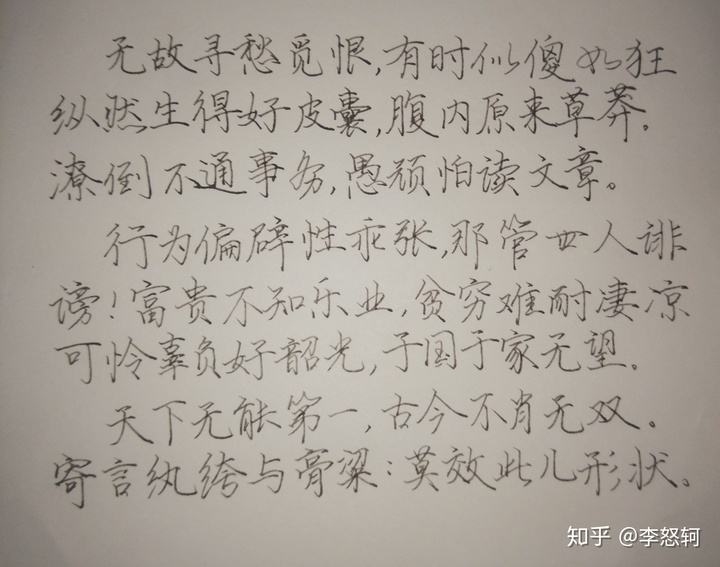 无故寻愁觅恨,有时似傻如狂
纵然生得好皮囊,腹内原来草莽。
潦倒不通事务,愚顽怕读文章。
行为偏僻性乖张,那管世人诽
谤!富贵不知乐业,贫穷难耐凄凉
可怜辜负好韶光,于国于家无望。
天下无能第一,古今不肖无双。
寄言纨绔与膏粱:莫效此儿形状。
知乎 @李怒轲